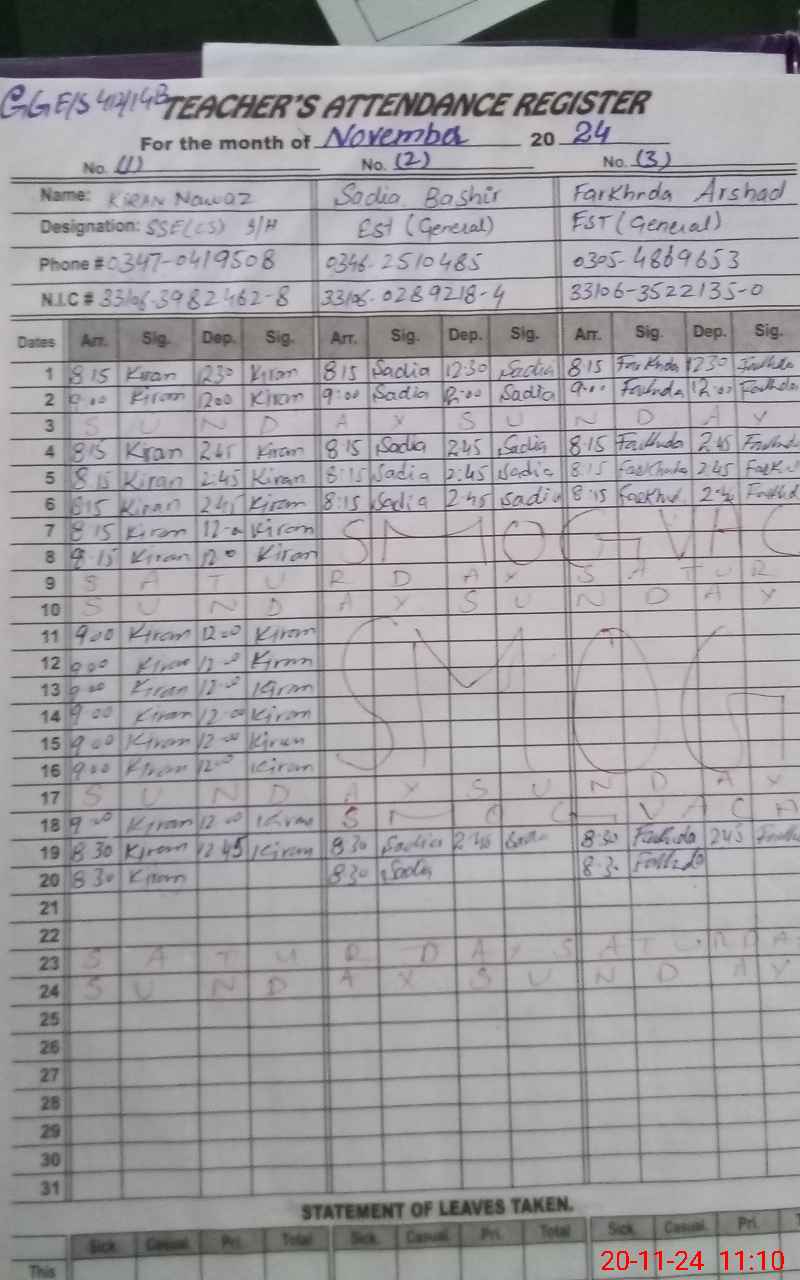 GGE/S 412/14B TEACHER'S ATTENDANCE REGISTER
For the month of November 20 24
No. (1) No. (2) No. (3)
Name: Kiran Nawaz Sadia Bashir Farkhnda Arshad
Designation: SSE(CS) S/H Est (General) EST (General)
Phone # 0347-0419508 0346-2510485 0305-4869653
N.I.C # 33106-3982462-8 33106-0289218-4 33106-3522135-0
Dates Arr. Sig. Dep. Sig. Arr. Sig. Dep. Sig. Arr. Sig. Dep. Sig.
1 8 15 Kiran 1230 Kiran 8 15 Sadia 12:30 Sadia 8 15 Farkhnda 12 30
2 9:00 Kiran 1200 Kiran 9:00 Sadia 12:00 Sadia 9:00 12:00
3 S U N D A Y S U N D A Y
4 8:15 Kiran 2:45 Kiran 8:15 Sadia 2:45 Sadia 8:15 2:45
5 8 15 Kiran 2:45 Kiran 8:15 Sadia 2:45 Sadia 8:15 2:45
6 8:15 Kiran 2:45 Kiran 8:15 Sadia 2:45 Sadia 8:15
7 8 15 Kiran Kiran SMOG VAC
8 8:15 Kiran Kiran
9 S A T U R D A Y S A T U R
10 S U N D A Y S U N D A Y
11 9 00 Kiran 12:00 Kiran SMOG
12 9 00 Kiran 12:00 Kiran
13 9 00 Kiran 12:00 Kiran
14 9 00 Kiran 12:00 Kiran
15 9 00 Kiran 12:00 Kiran
16 9 00 Kiran 12:00 Kiran
17 S U N D A Y S U N D A Y
18 9 00 Kiran 12 00 Kiran S M O G V A C A
19 8 30 Kiran 12 45 Kiran 8 30 Sadia 2:45 Sadia 8:30 2 45
20 8 30 Kiran 8 30 Sadia 8:30
21
22
23 S A T U R D A Y S A T U R D A
24 S U N D A Y S U N D A Y
25
26
27
28
29
30
31
STATEMENT OF LEAVES TAKEN.
Sick Casual Pri. Total Sick Casual Pri. Total Sick Casual. Pri.
This
20-11-24 11:10